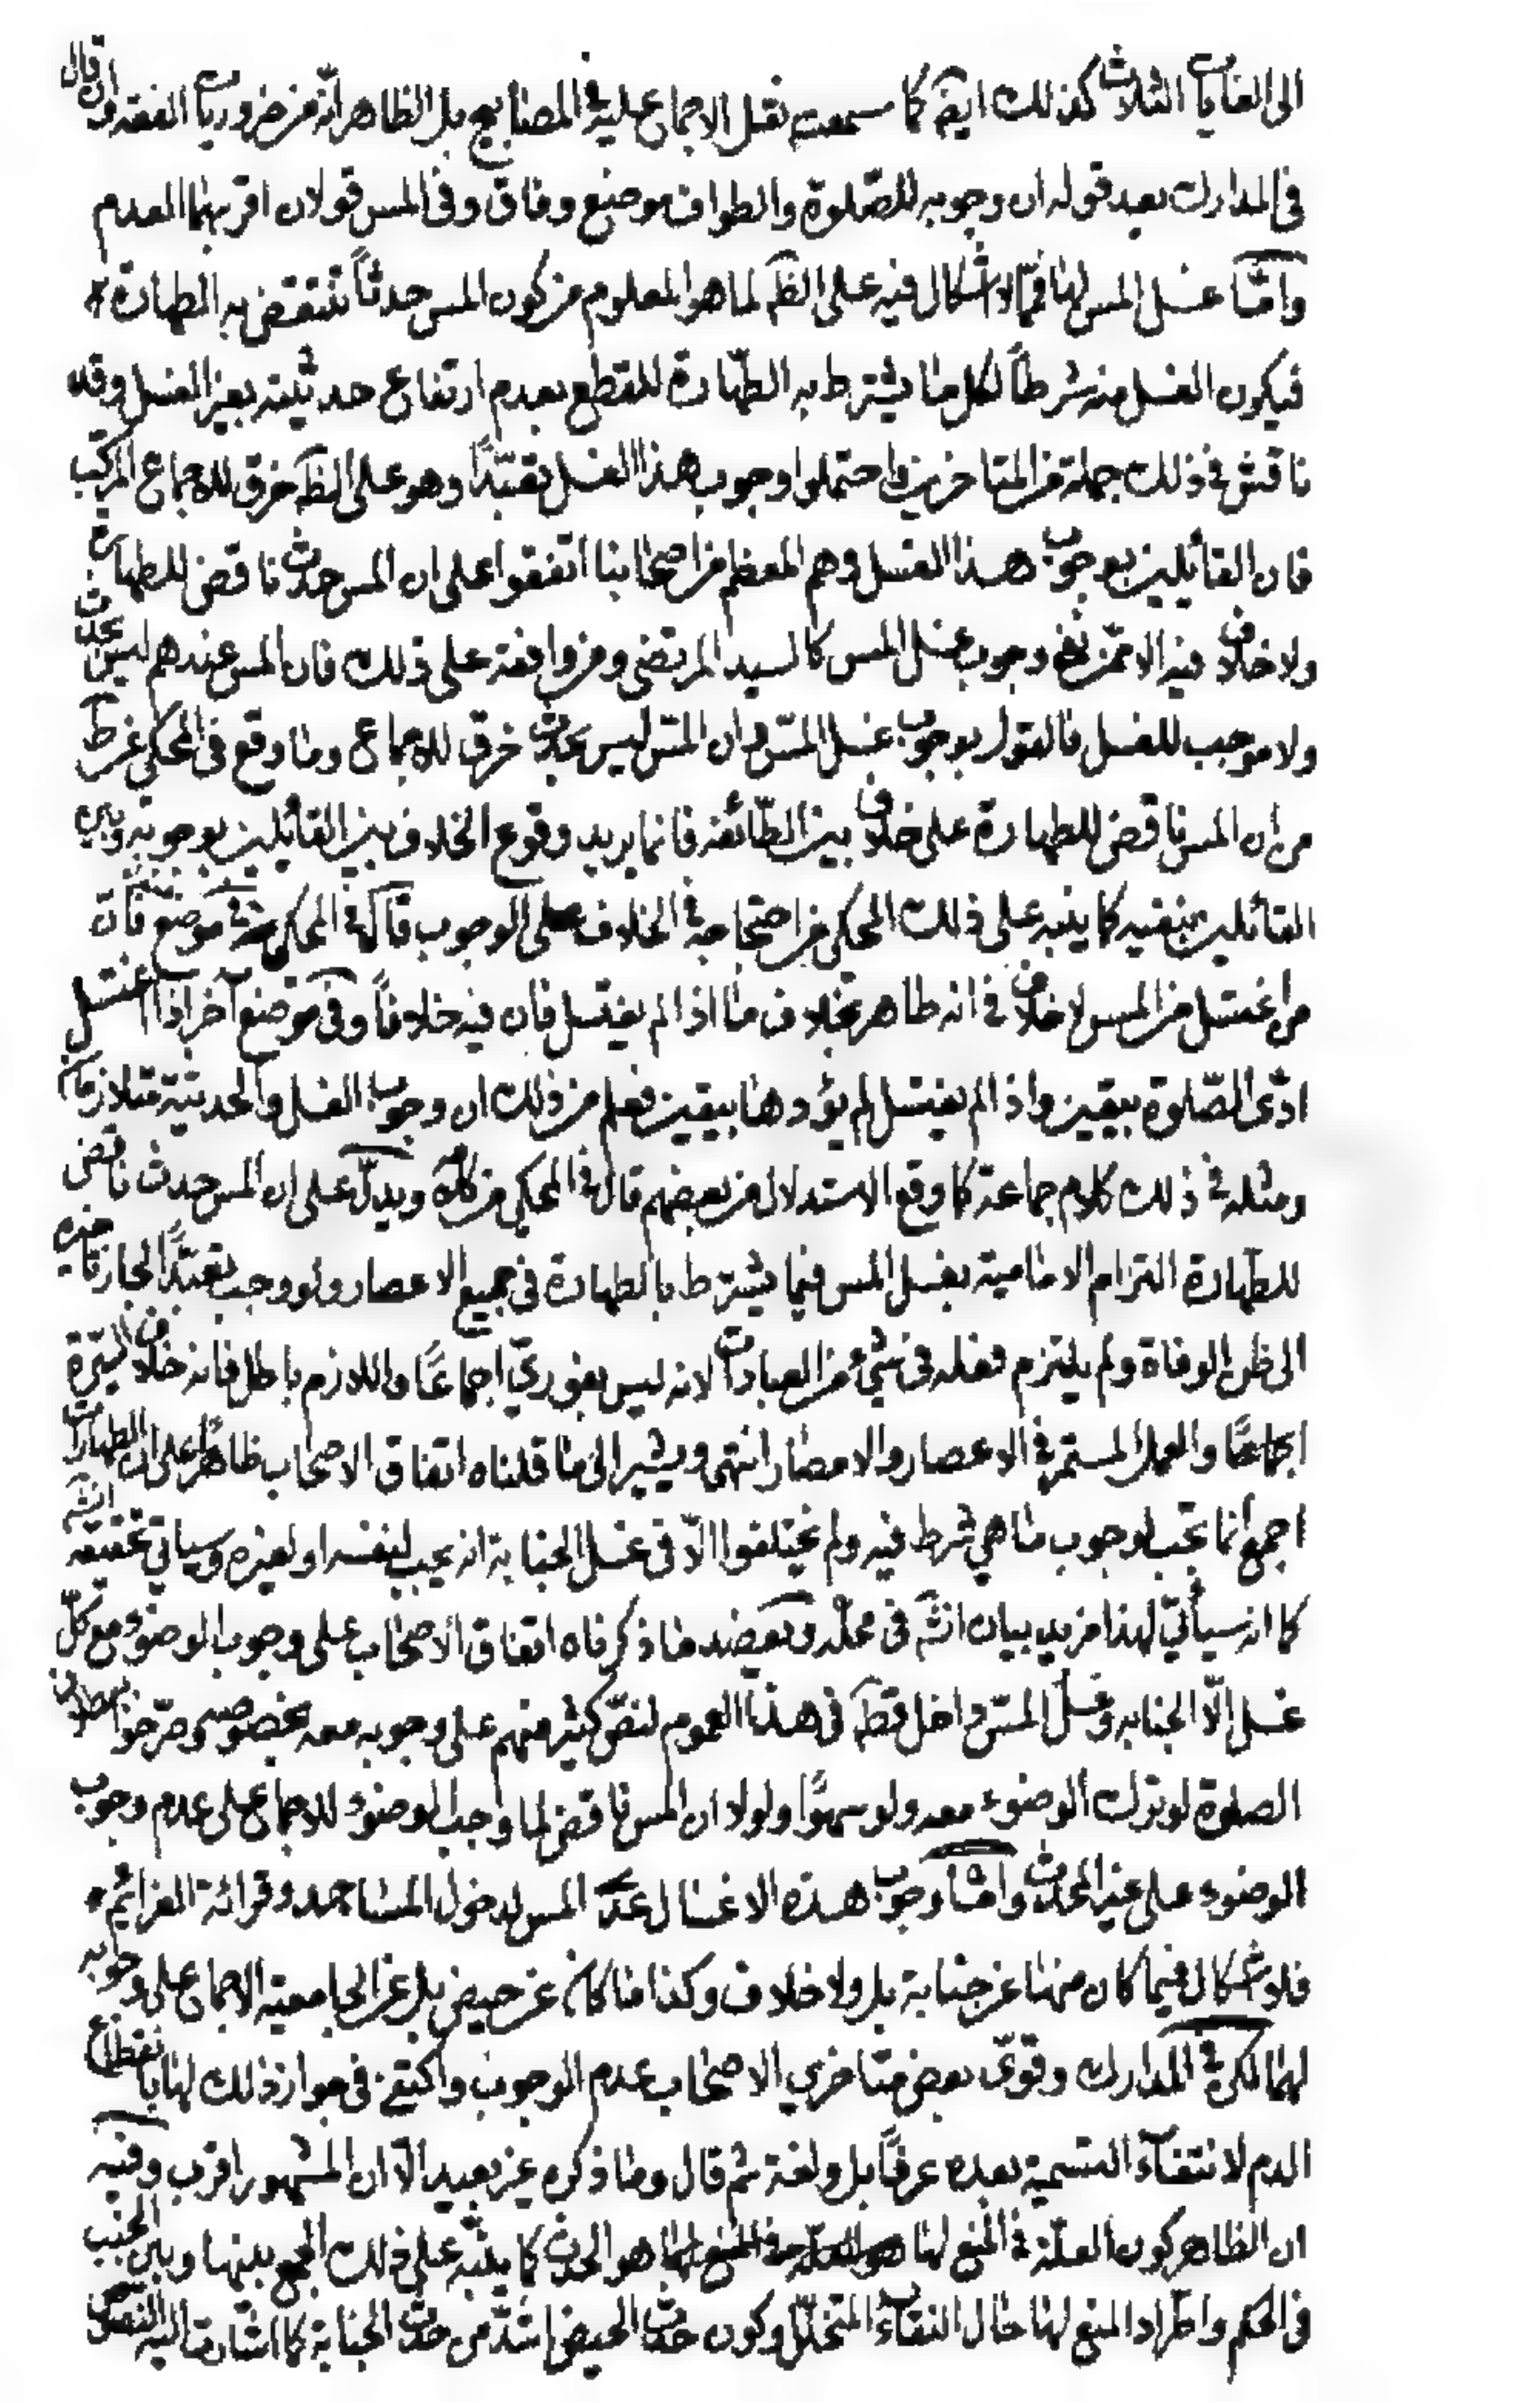 الى الغايات الثلاث كذلك ايضا كما سمعت نقل الاجماع عليه في المصابيح بل الظاهر انّه من ضروريات الفقه وان قال
في المدارك بعد قوله ان وجوبه للصّلوة والطواف موضع وفاق وفى المس قولان اقربهما العدم
وامّا غسل المس لها فممّا لا اشكال فيه على الظَ لما هو المعلوم من كون المس حدثاً تنتقض به الطهارة
فيكون الغسل منه شرطاً لكل ما يشترط به الطّهارة للقطع بعدم ارتفاع حدثيته بغير الغسل وقد
ناقش في ذلك جملة من المتاخرين واحتملوا وجوب هذا الغسل تعبّداً وهو على الظَ خرق للاجماع المركّب
فان القائلين بوجوب هذا الغسل وهم المعظم من اصحابنا اتفقوا على ان المس حدث ناقض للطهارة
ولا خلاف فيه الا ممّن نفى وجوب غسل المس كالسيد المرتضى ومن وافقه على ذلك فان المس عندهم ليس بحدث
ولا موجب للغسل فالقول بوجوب غسل المسّ وان المسّ ليس بحدث خرق للاجماع وما وقع في المحكي عن ط
من ان المس ناقض للطهارة على خلاف بين الطّائفة فانما يريد وقوع الخلاف بين القائلين بوجوبه وبين
القائلين بنفيه كما ينبه على ذلك المحكي من احتجاجه في الخلاف على الوجوب قال في المحكي موضع فان
من اغتسل من المس لا خلاف في انه طاهر بخلاف ما اذا لم يغتسل فان فيه خلافاً وفى موضع آخر اذا اغتسل
ادّى الصّلوة بيقين واذا لم يغتسل لم يؤدها بيقين فعلم من ذلك ان وجوب الغسل والحدثية متلازمان
ومثله في ذلك كلام جماعة كما وقع الاستدلال من بعضهم قال في المحكي من ويدلّ على ان المس حدث ناقض
للطهارة التزام الامامية بغسل المس فيما يشترط بالطهارة في جميع الاعصار ولو وجب تعبّداً لجاز تاخيره
الى ظن الوفاة ولم يلتزم فعله في شيء من العبادات لانه ليس بفوريّ اجماعاً واللازم باطل فانه خلاف السّيرة
اجماعاً والعمل المستمر في الاعصار والامصار انتهى ويشير الى ما قلناه اتفاق الاصحاب ظاهراً على ان الطهارات
اجمع انما تجب لوجوب ما هي شرط فيه ولم يختلفوا الّا في غسل الجنابة انه يجب لنفسه او لغيره وسياتي تحقيقه انشَ
كما انه سيأتيّ لهذا مزيد بيان انشَ في محلّه ويعضد ما ذكرناه اتفاق الاصحاب على وجوب الوضوء مع كلّ
غسل الّا الجنابه وغسل المسّ داخل قطعَ في هذا العموم لنصّ كثير منهم على وجوبه معه بخصوصه وصرّحوا ببطلان
الصلوة لو ترك الوضوء معه ولو سهوًا ولولا ان المس ناقض لما وجب الوضوء للاجماع على عدم وجوب
الوضوء على غير المحدث وامّا وجوب هذه الاغسال عدا المس لدخول المساجد وقرائة العزائم
فلا اشكال فيما كان منها عن جنابة بل ولا خلاف وكذا ما كان عن حيض بل عن الجامعية الاجماع على وجوبه
لهما لكن في المدارك وقوّى بعض متاخري الاصحاب عدم الوجوب واكتفى في جواز ذلك لها بانقطاع
الدم لانتفاء التسمية بعده عرفاً بل ولغة ثم قال وما ذكره غير بعيد الّا ان المشهور اقرب وفيه
ان الظاهر كون العلّة في المنع لها هو الحدث كما ينبّه على ذلك الجمع بينها وبين الجنب
في الحكم واطّراد المنع لها حال النقاء المتخلّل وكون حدث الحيض اشدّ من حدث الجنابة كما اشارت اليه النصوص